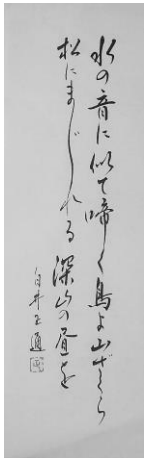 水の音に似て啼く鳥よ山ざくら
松にまじれる深山の昼を